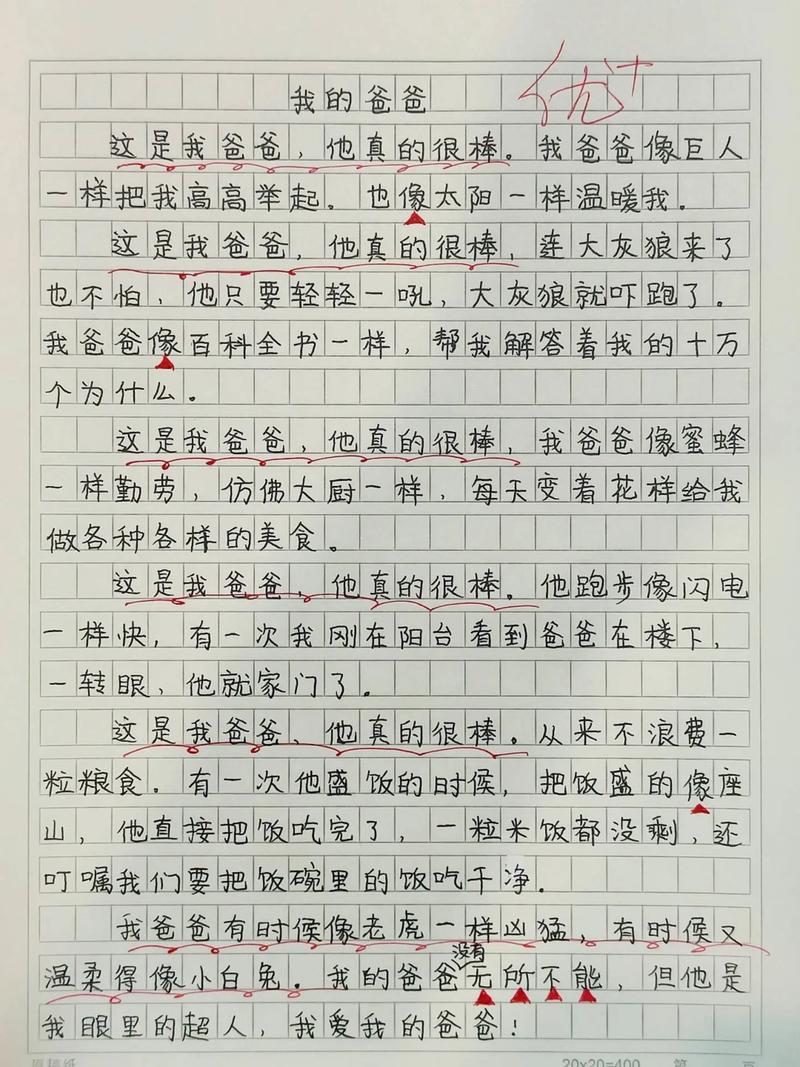 优+
我的爸爸
这是我爸爸,他真的很棒。我爸爸像巨人
一样把我高高举起。也像太阳一样温暖我。
这是我爸爸,他真的很棒,连大灰狼来了
也不怕,他只要轻轻一吼,大灰狼就吓跑了。
我爸爸像百科全书一样,帮我解答着我的十万
个为什么。
这是我爸爸,他真的很棒,我爸爸像蜜蜂
一样勤劳,仿佛大厨一样,每天变着花样给我
做各种各样的美食。
这是我爸爸,他真的很棒。他跑步像闪电
一样快,有一次我刚在阳台看到爸爸在楼下,
一转眼,他就家门了。
这是我爸爸,他真的很棒。从来不浪费一
粒粮食。有一次他盛饭的时候,把饭盛的像座
山,他直接把饭吃完了,一粒米饭都没剩,还
叮嘱我们要把饭碗里的饭吃干净.
我爸爸有时候像老虎一样凶猛,有时候又
温柔得像小白兔。我的爸爸没有无所不能,但他是
我眼里的超人,我爱我的爸爸!
20×20=400 第 页